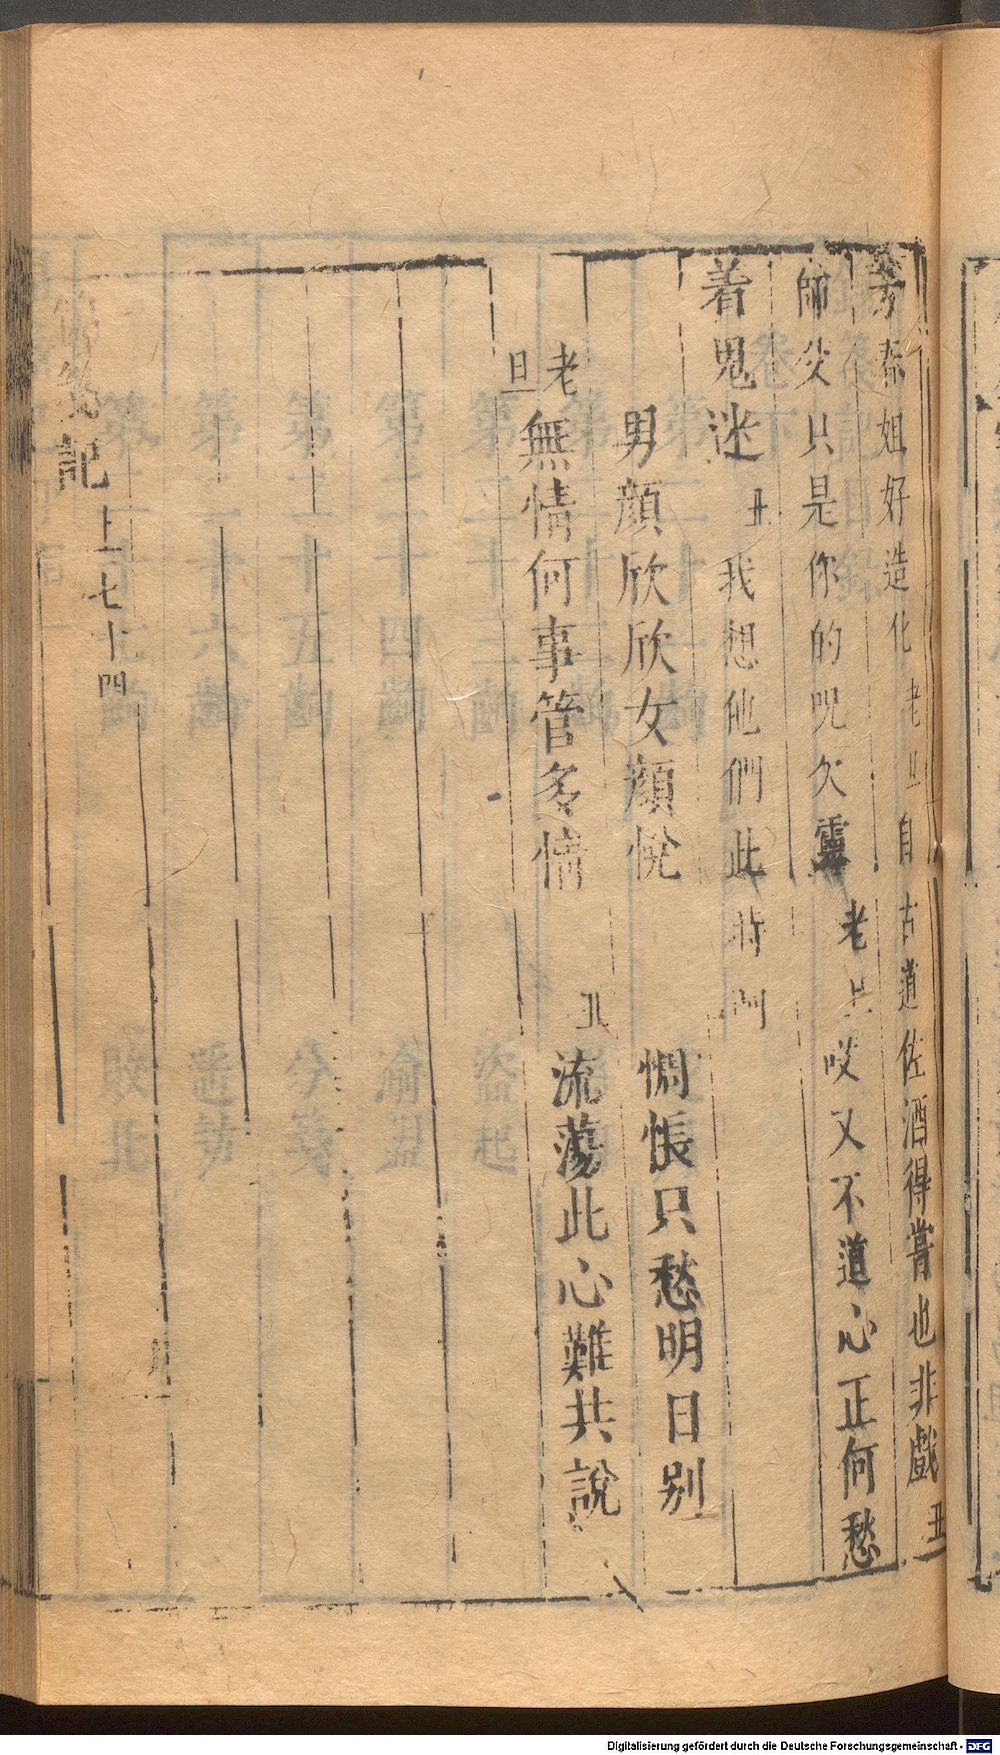 春姐好造化老旦自古道佐酒得嘗也非戲丑
師父只是你的呪欠靈老旦哎又不道心正何愁
着鬼迷丑我想他們此時
男顔欣欣女顔悅 惆悵只愁明日别
老旦無情何事管多情 丑流蕩此心難共說
箋記 上七十四
Digitalisierung gefördert durch die Deutsche Forschungsgemeinschaft - DFG